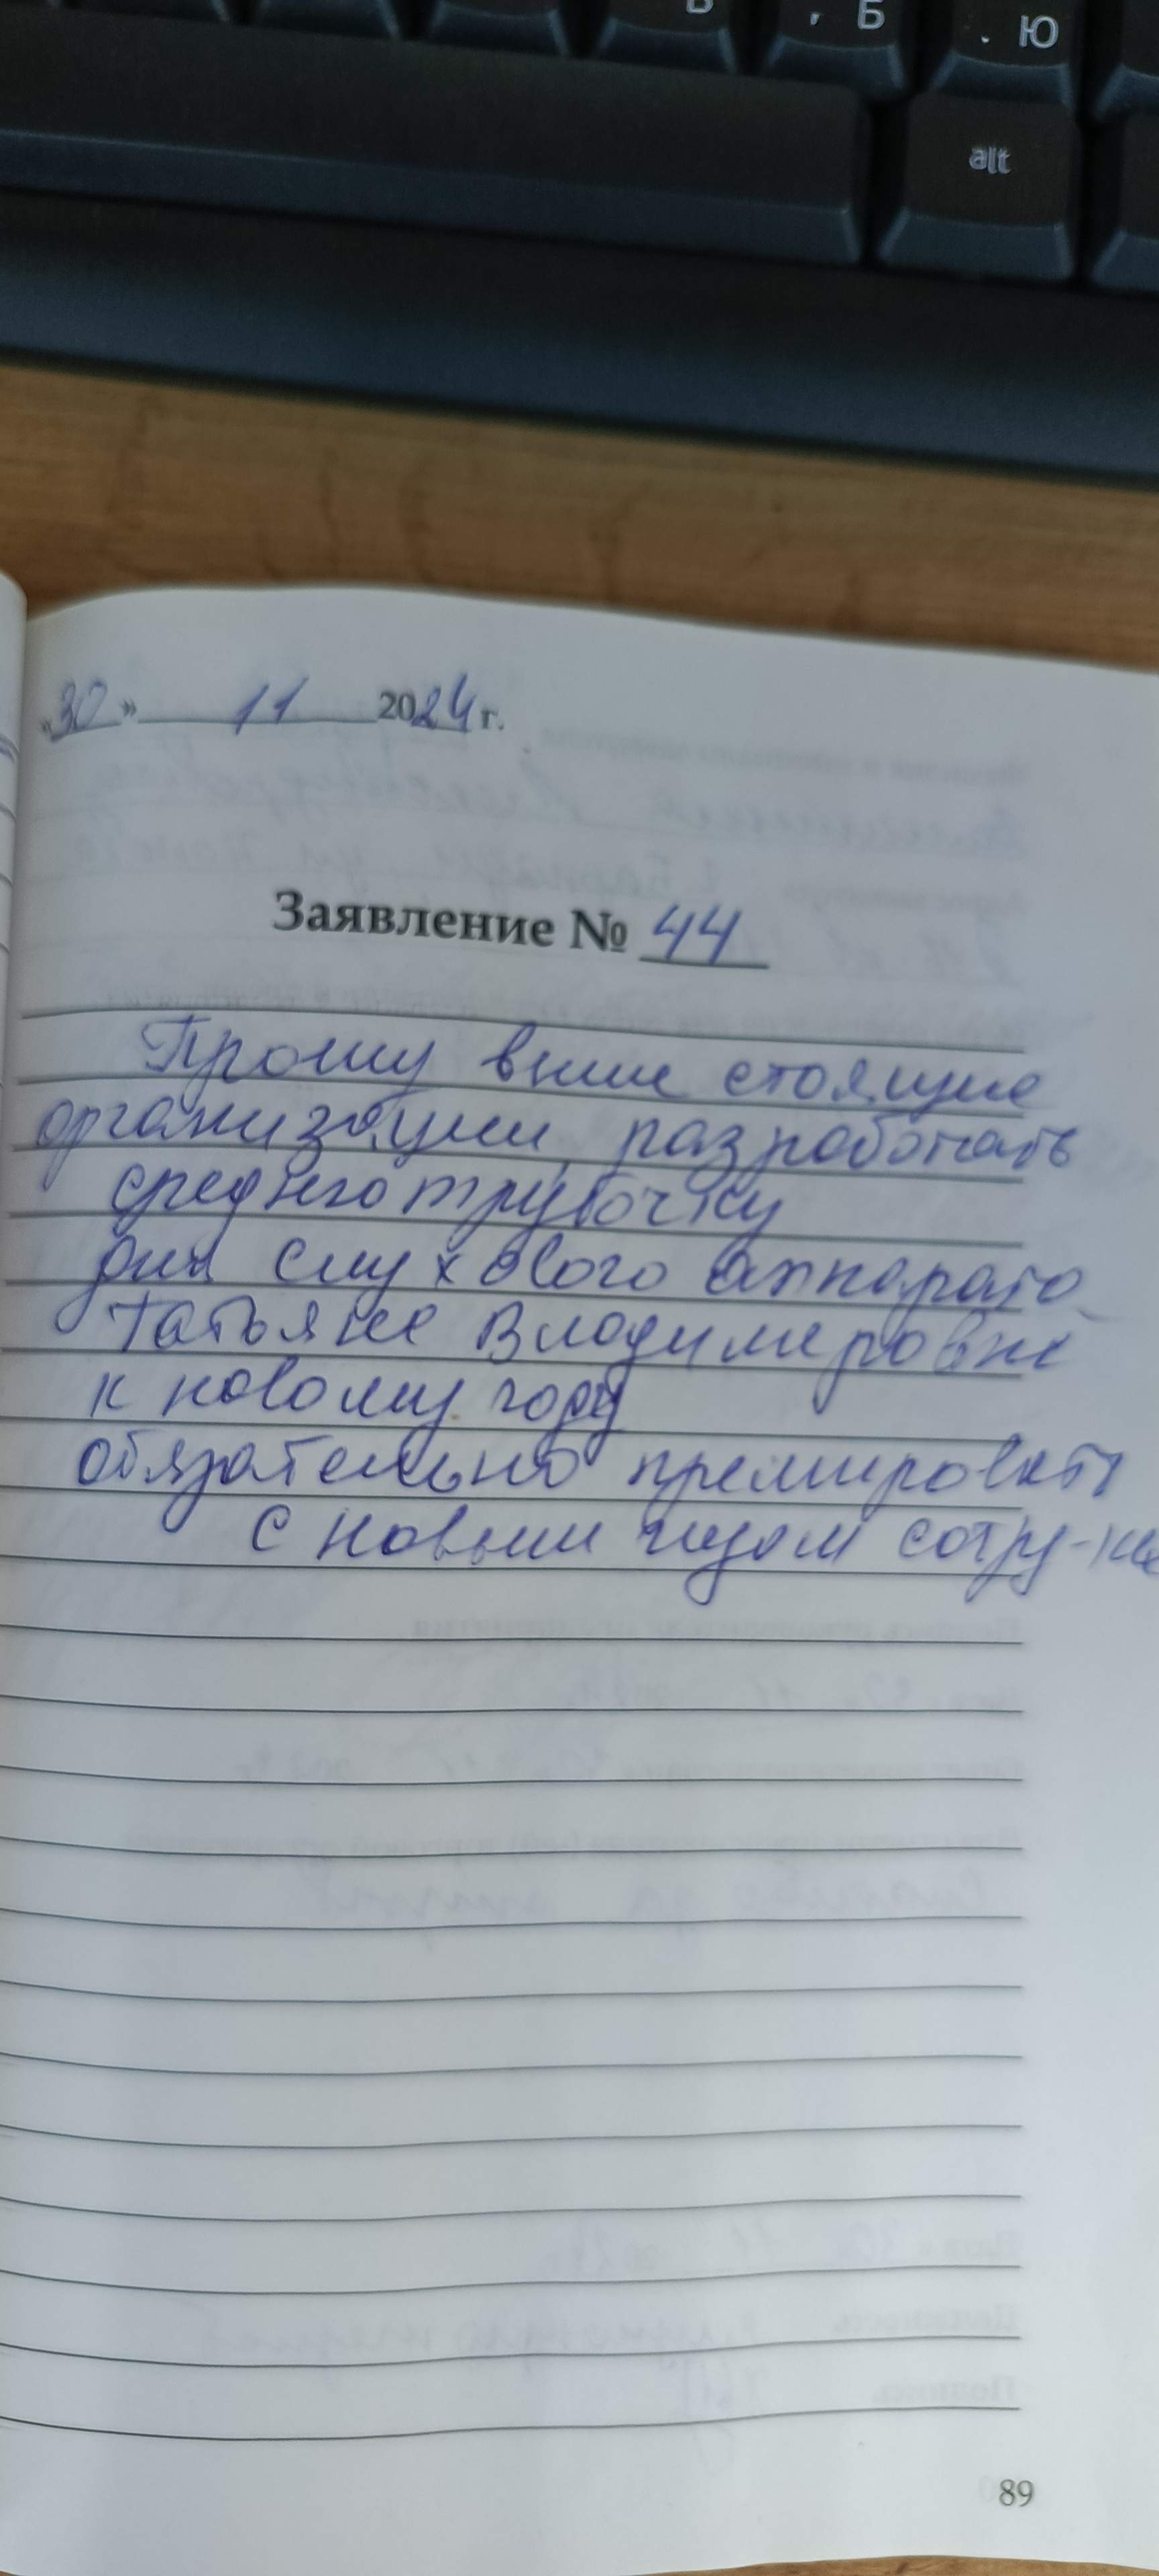 Б
, Б
. Ю
alt
«30» 11 2024 г.
Заявление № 44
Прошу выше стоящие
организации, разработать
среднего трубочку
для слухового аппарата
Татьяне Владимировне
к новому году
обязательно премировать
с новым годом сотру-ки
89